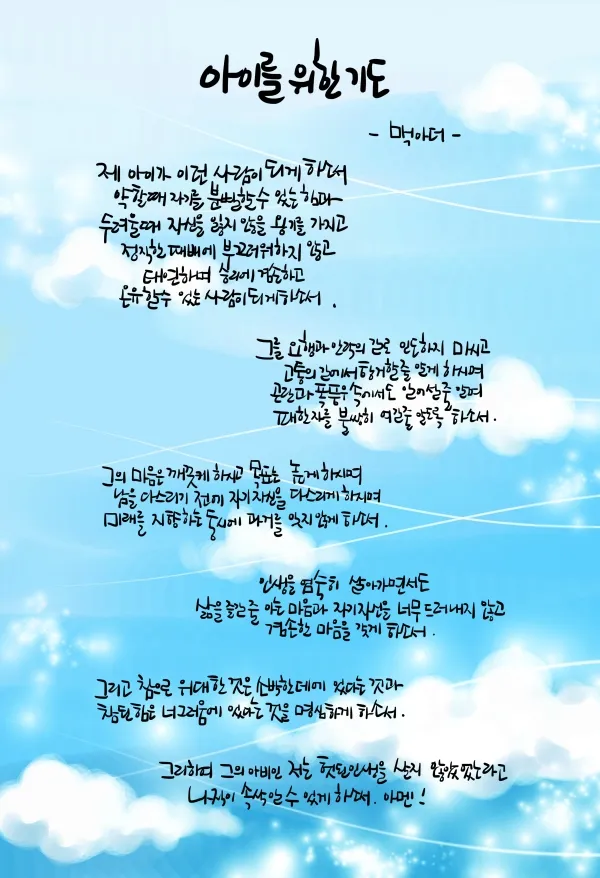 아이를 위한 기도
- 맥아더 -
제 아이가 이런 사람이 되게 하소서
약할때 자기를 분별할수 있는 힘과
두려울때 자신을 잃지 않을 용기를 가지고
정직한 패배에 부끄러워하지 않고
태연하며 승리에 겸손하고
온유할수 있는 사람이 되게 하소서 .
그를 요행과 안락의 길로 인도하지 마시고
고통의 길에서 항거할줄 알게 하시며
곤란과 폭풍우 속에서도 일어설줄 알며
패한자를 불쌍히 여길줄 알도록 하소서.
그의 마음은 깨끗케 하시고 목표는 높게 하시며
남을 다스리기 전에 자기자신을 다스리게 하시며
미래를 지향하는 동시에 과거를 잊지 않게 하소서.
인생을 엄숙히 살아가면서도
삶을 즐길줄 아는 마음과 자기자신을 너무 드러내지 않고
겸손한 마음을 갖게 하소서.
그리고 참으로 위대한 것은 소박한데에 있다는 것과
참된 힘은 너그러움에 있다는 것을 명심하게 하소서.
그리하여 그의 아비인 저는 헛된인생을 살지 않았었노라고
나직이 속삭일수 있게 하소서. 아멘!!